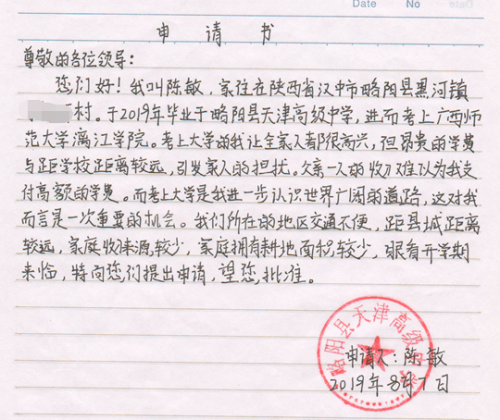 Date No
申请书
尊敬的各位领导：
您们好！我叫陈敏，家住在陕西省汉中市略阳县黑河镇
村。于2019年毕业于略阳县天津高级中学，进而考上广西师
范大学漓江学院。考上大学的我让全家人都很高兴，但昂贵的学费
与距学校距离较远，引发家人的担扰。父亲一人的收入难以为我支
付高额的学费。而考上大学是我进一步认识世界广阔的道路，这对我
而言是一次重要的机会。我们所在的地区交通不便，距县城距离
较远，家庭收来源较少，家庭拥有耕地面积较少，眼看开学期
来临，特向您们提出申请，望您批准。
略阳县天津高级中学
申请人：陈敏
2019年8月7日